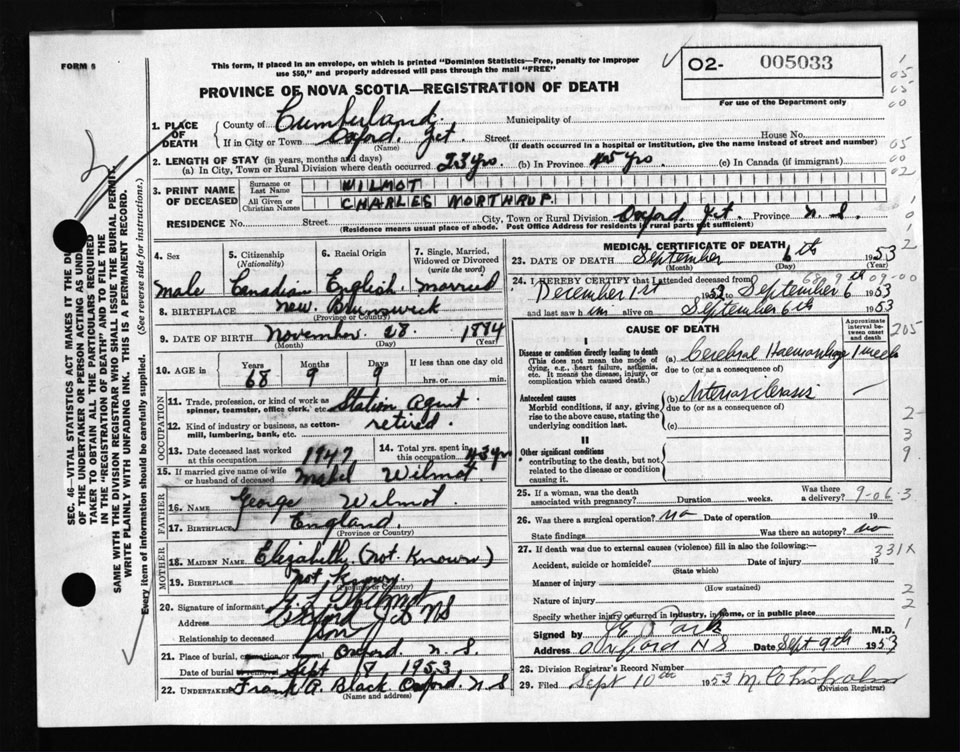 FORM 8
This form, if placed in an envelope, on which is printed "Dominion Statistics—Free, penalty for improper
use $50," and properly addressed will pass through the mail "FREE"
PROVINCE OF NOVA SCOTIA—REGISTRATION OF DEATH
02- 005033
For use of the Department only
SEC. 46—VITAL STATISTICS ACT MAKES IT THE DU
OF THE UNDERTAKER OR PERSON ACTING AS UNDE
TAKER TO OBTAIN ALL THE PARTICULARS REQUIRED
IN THE "REGISTRATION OF DEATH" AND TO FILE THE
SAME WITH THE DIVISION REGISTRAR WHO SHALL ISSUE THE BURIAL PERMIT.
WRITE PLAINLY WITH UNFADING INK. THIS IS A PERMANENT RECORD.
Every item of information should be carefully supplied. (See reverse side for instructions.)
1. PLACE OF DEATH
County of Cumberland. Municipality of
If in City or Town Oxford. Jct. Street House No.
(Name) (If death occurred in a hospital or institution, give the name instead of street and number)
2. LENGTH OF STAY (in years, months and days)
(a) In City, Town or Rural Division where death occurred 23 yrs. (b) In Province 45 yrs. (c) In Canada (if immigrant)
3. PRINT NAME OF DECEASED
Surname or Last Name WILMOT
All Given or Christian Names CHARLES NORTHRUP.
RESIDENCE No. Street City, Town or Rural Division Oxford. Jct. Province N. S.
(Residence means usual place of abode. Post Office Address for residents in rural parts not sufficient)
4. Sex 5. Citizenship (Nationality) 6. Racial Origin 7. Single, Married, Widowed or Divorced (write the word)
Male Canadian English. Married
8. BIRTHPLACE New Brunswick
(Province or Country)
9. DATE OF BIRTH November 28. 1884
(Month) (Day) (Year)
10. AGE in Years Months Days If less than one day old
68 9 9 hrs. or min.
OCCUPATION
11. Trade, profession, or kind of work as spinner, teamster, office clerk, etc. Station Agent
12. Kind of industry or business, as cotton-mill, lumbering, bank, etc. retired.
13. Date deceased last worked at this occupation 1947 14. Total yrs. spent in this occupation 43 yrs
15. If married give name of wife or husband of deceased Mabel Wilmot.
FATHER
16. NAME George Wilmot.
17. BIRTHPLACE England.
(Province or Country)
MOTHER
18. MAIDEN NAME Elizabeth. (not. Known)
19. BIRTHPLACE not. Known.
(Province or Country)
20. Signature of informant Wilmot
Address Oxford Jct NS
Relationship to deceased Son
21. Place of burial, cremation or removal Oxford. N. S.
Date of burial or removal Sept 8 1953
22. Undertaker Frank A. Black Oxford. N S
(Name and address)
MEDICAL CERTIFICATE OF DEATH
23. DATE OF DEATH September 6th 1953
(Month) (Day) (Year)
24. I HEREBY CERTIFY that I attended deceased from
December 1st 1952 to September 6 1953
and last saw him alive on September 6th 1953
CAUSE OF DEATH
Approximate interval between onset and death
I
Disease or condition directly leading to death
(This does not mean the mode of dying, e.g., heart failure, asthenia, etc. It means the disease, injury, or complication which caused death.)
(a) Cerebral Haemorrhage 1 week
due to (or as consequence of)
Antecedent causes
Morbid conditions, if any, giving rise to the above cause, stating the underlying condition last.
(b) Arteriosclerosis
due to (or as a consequence of)
(c)
II
Other significant conditions
contributing to the death, but not related to the disease or condition causing it.
25. If a woman, was the death associated with pregnancy? Duration weeks. Was there a delivery?
9-06-3
26. Was there a surgical operation? No Date of operation 19
State findings Was there an autopsy? No
27. If death was due to external causes (violence) fill in also the following:—
331X
Accident, suicide or homicide? Date of injury 19
(State which)
Manner of injury
(How sustained)
Nature of injury
Specify whether injury occurred in industry, in home, or in public place
Signed by M.D.
Address Oxford NS Date Sept 9th 1953
28. Division Registrar's Record Number
29. Filed Sept 10th 1953 M. Chisholm
(Division Registrar)